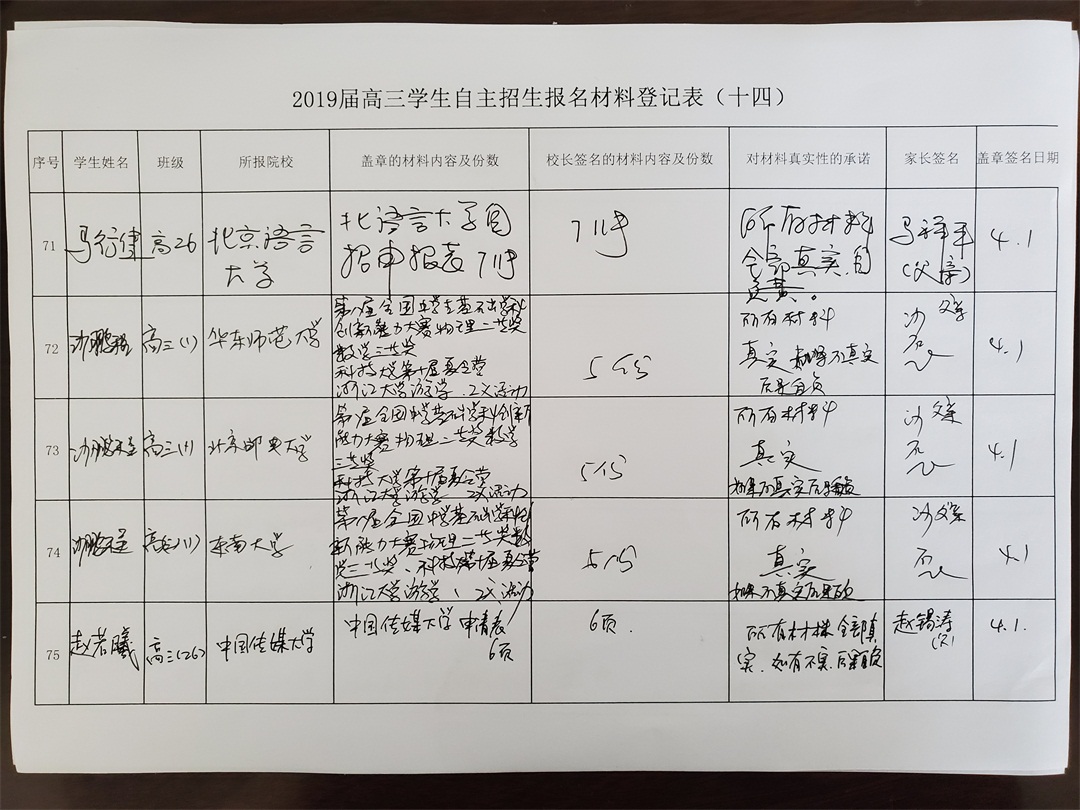 2019届高三学生自主招生报名材料登记表（十四）
序号 学生姓名 班级 所报院校 盖章的材料内容及份数 校长签名的材料内容及份数 对材料真实性的承诺 家长签名 盖章签名日期
71 马行健 高26 北京语言 北语言大学自 所有材料 4.1
大学 招申报表 全部真实，自
(父亲)
负责。
72 高三(1) 华东师范大学 第八届全国中学生基础学科 5份 所有材料 沙 父亲 4.1
创新能力大赛物理二等奖
数学三等奖 真实 如果不真实
科技大学第十届夏令营 后果自负
浙江大学游学、二义活动
73 高三(1) 北京邮电大学 第八届全国中学基础学科创新 5份 所有材料 沙 父亲 4.1
能力大赛物理二等奖数学
三等奖 真实
科技大学第十届夏令营 如果不真实后果自负
浙江大学游学、二义活动
74 高三(1) 东南大学 第八届全国中学基础学科创 5份 所有材料 沙 父亲 4.1
新能力大赛物理二等奖数
学三等奖、科技第十届夏令营 真实
浙江大学游学、二义活动 如果不真实后果自负
75 赵若曦 高三(26) 中国传媒大学 中国传媒大学申请表 6项. 所有材料全部真 赵锡涛 4.1.
6项 实，如有不实，后果自负 (父)